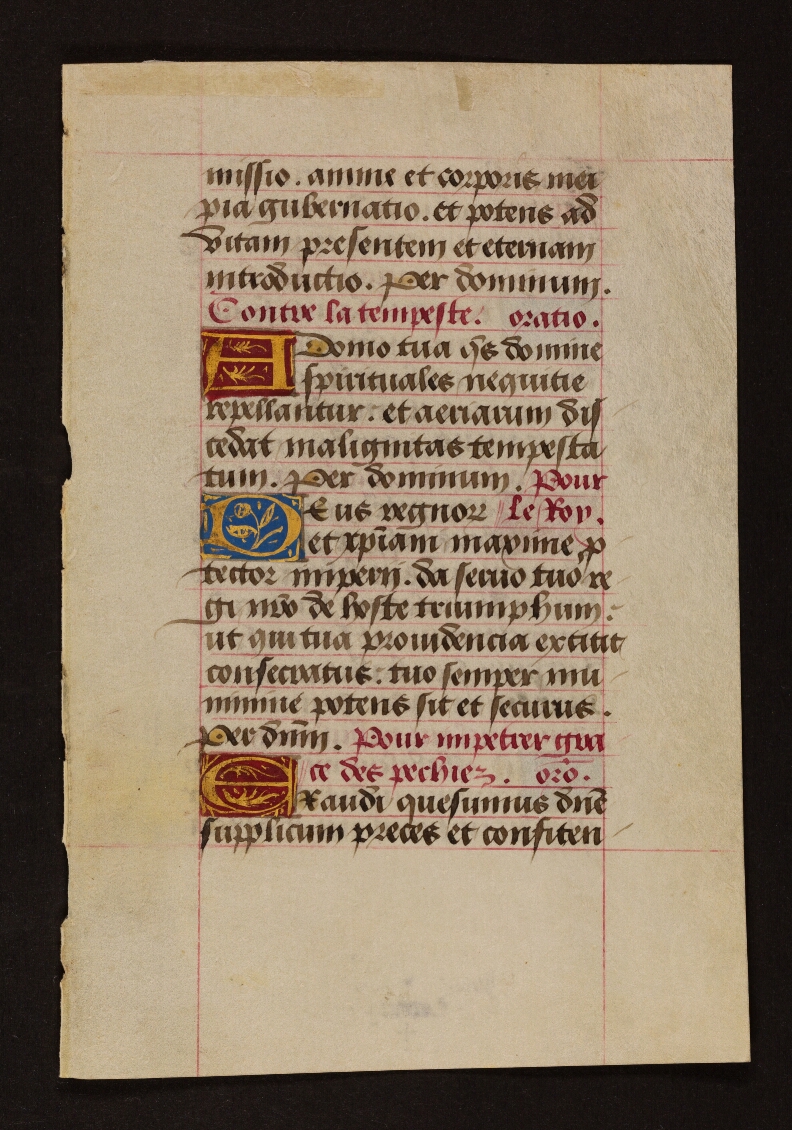 missio. anime et corporis mei
pia gubernatio. et potens ad
vitam presentem et eternam
introductio. Per dominum.
Contre la tempeste. oratio.
A Domo tua q̄s domine
spirituales nequitie
repellantur. et aeriarum dis
cedat malignitas tempesta
tum. Per dominum. Pour
DEus regnoꝝ le Roy.
et xp̄iam maxime ꝓ
tector imperij. da seruo tuo re
gi nr̄o de hoste triumphum.
ut qui tua prouidencia extitit
consecratus. tuo semper mu
nimine potens sit et securus.
Per dn̄m. Pour impetrer gra
ce des pechiez. orō.
EXaudi quesumus dn̄e
supplicum preces et confiten